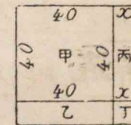 40 x
40 甲 40 丙
40 x
乙 丁